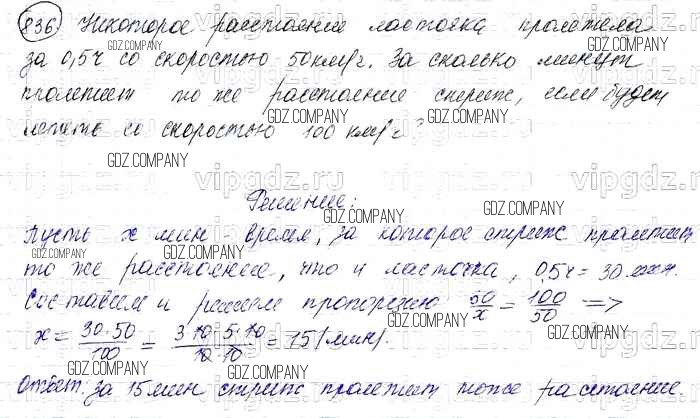 836. Некоторое расстояние ласточка пролетела
за 0,5ч со скоростью 50км/ч. За сколько минут
пролетит то же расстояние стриж, если будет
лететь со скоростью 100 км/ч?
Решение:
Пусть x мин - время, за которое стриж пролетит
то же расстояние, что и ласточка, 0,5ч = 30мин.
Составим и решим пропорцию 50/x = 100/50 =>
x = 30·50/100 = 3·10·5·10/10·10 = 15(мин).
Ответ: за 15мин стриж пролетит тоже расстояние.
GDZ.COMPANY
vipgdz.ru